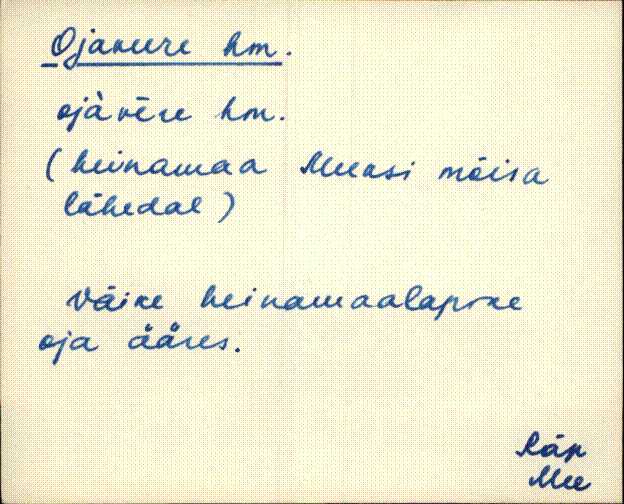 Ojaveere hm.
ojàvēre hm.
(heinamaa Meeksi mõisa
lähedal)
Väike heinamaalapike
oja ääres.
Räp
Mee